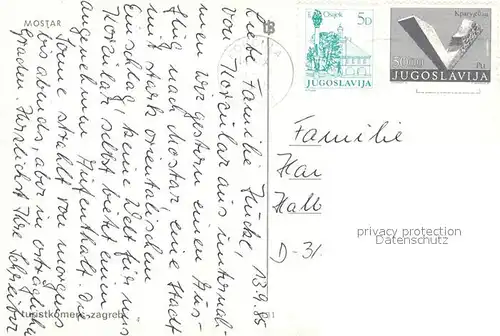 MOSTAR
Osijek
5D
JUGOSLAVIJA
Kragujevac
JUGOSLAVIJA
13.9.85
Liebe Familie
von Korčula aus unternah-
men wir gestern einen Aus-
flug nach Mostar eine Stadt
mit stark orientalischem
Einschlag, keine Welt für uns
Korčula selbst bietet einen
angenehmen Aufenthalt. Die
Sonne strahlt von morgens
bis abends, aber in erträglichen
Graden. Herzlichst Ihre
turistkomerc-zagreb
Familie
Hall
D-31
privacy protection
Datenschutz